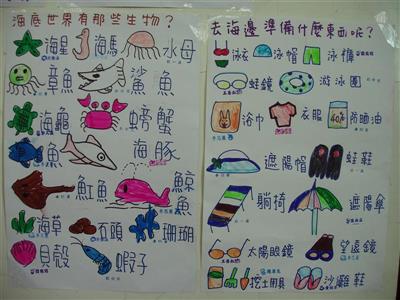 海底世界有那些生物？
海星 海馬 水母
章魚 鯊魚
海龜 螃蟹
魚 海豚
魟魚 鯨魚
海草 石頭 珊瑚
貝殼 蝦子
去海邊準備什麼東西呢？
泳衣 泳帽 泳褲
蛙鏡 游泳圈
浴巾 衣服 防曬油
遮陽帽 蛙鞋
躺椅 遮陽傘
太陽眼鏡 望遠鏡
挖土用具 沙灘鞋